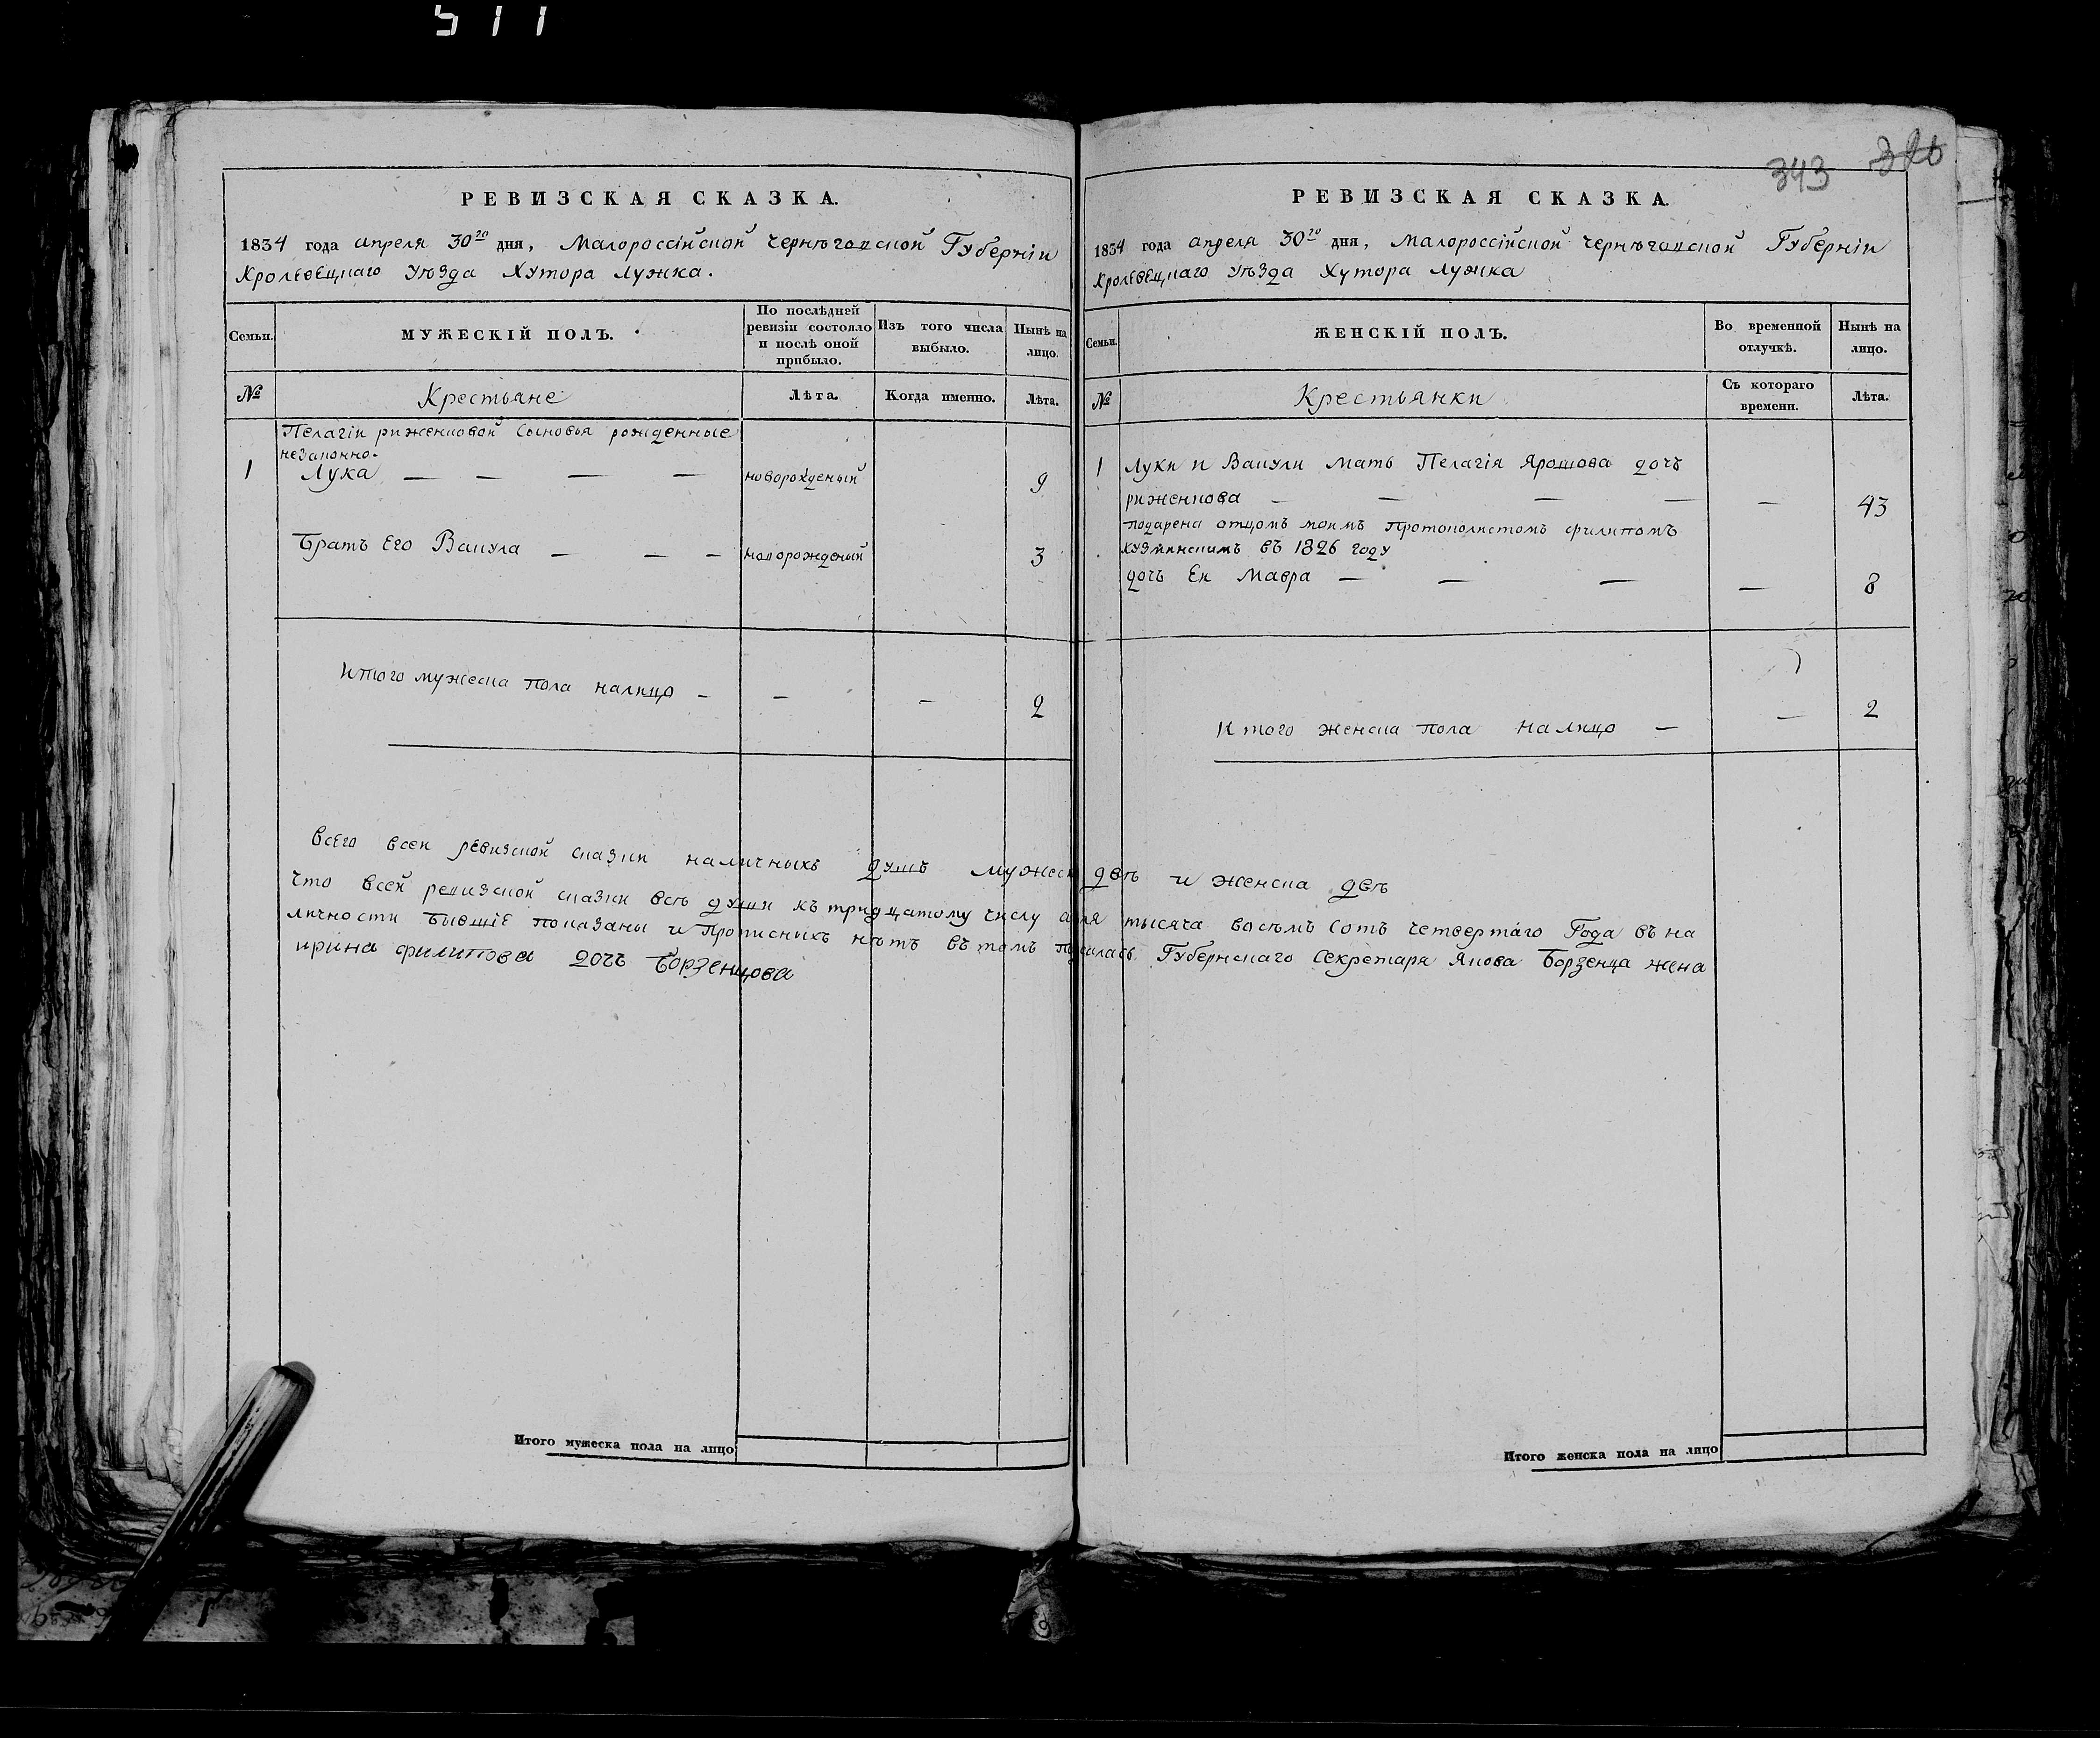 511
343 326
РЕВИЗСКАЯ СКАЗКА.
1834 года апреля 30го дня, Малороссійской Черниговской Губерніи
Кролевецкаго уѣзда Хутора Лужка.
Семьи.
МУЖЕСКІЙ ПОЛЪ.
По послѣдней ревизіи состояло и послѣ оной прибыло.
Изъ того числа выбыло.
Нынѣ на лицо.
№
Крестьяне
Лѣта.
Когда именно.
Лѣта.
Пелагіи риженковой Сыновья рожденные
незаконно.
1 Лука — — — — новорожденый 9
Братъ Его Вакула — — — новорожденый 3
Итого мужеска пола налицо — — — 2
РЕВИЗСКАЯ СКАЗКА.
1834 года апреля 30го дня, Малороссійской Черниговской Губерніи
Кролевецкаго уѣзда Хутора Лужка
Семьи.
ЖЕНСКІЙ ПОЛЪ.
Во временной отлучкѣ.
Нынѣ на лицо.
№
Крестьянки
Съ котораго времени.
Лѣта.
1 Луки и Вакули мать Пелагія Ярошова дочъ
риженкова — — — — — 43
подарена отцомъ моимъ Протополистомъ филипомъ
въ 1826 году
дочъ Ея Мавра — — — — 8
Итого женска пола налицо — — 2
Всего всей ревизской сказки наличныхъ душъ мужеска двѣ и женска двѣ
что всей ревизской сказки всѣ души къ тридцатому числу тысяча восемъ Сотъ четвертаго Года въ на
личности бывшіе показаны и Прописныхъ нѣтъ въ томъ Губернскаго Секретаря Якова Борзенца жена
ирина филипова дочъ Борзенцова
Итого мужеска пола на лицо
Итого женска пола на лицо